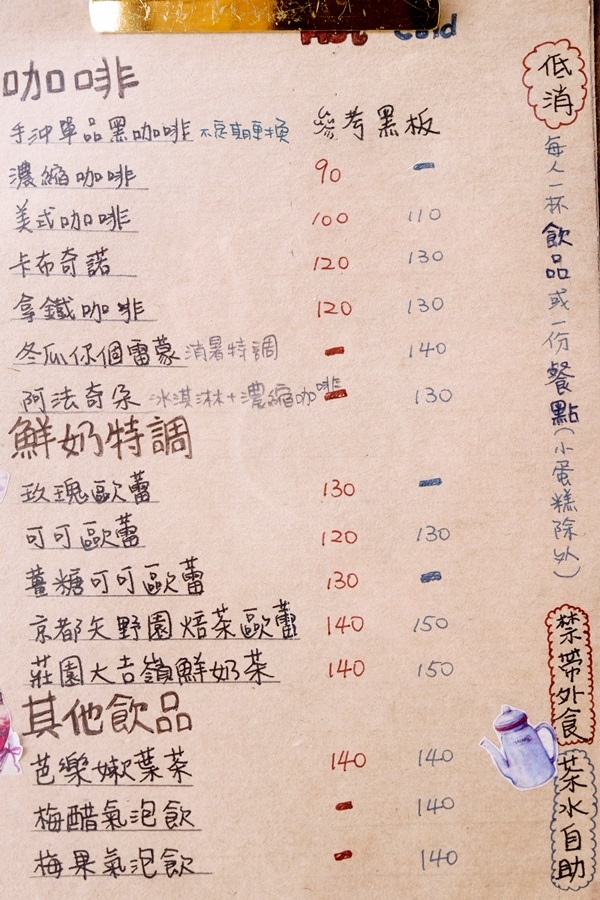 Hot Cold
咖啡
手沖單品黑咖啡 不定期更換 參考黑板
濃縮咖啡 90 -
美式咖啡 100 110
卡布奇諾 120 130
拿鐵咖啡 120 130
冬瓜你個雷蒙 消暑特調 - 140
阿法奇朵 冰淇淋+濃縮咖啡 - 130
鮮奶特調
玫瑰歐蕾 130 -
可可歐蕾 120 130
薑糖可可歐蕾 130 -
京都矢野園焙茶歐蕾 140 150
莊園大吉嶺鮮奶茶 140 150
其他飲品
芭樂嫩葉茶 140 140
梅醋氣泡飲 - 140
梅果氣泡飲 - 140
低消
每人一杯飲品或一份餐點(小蛋糕除外)
禁帶外食
茶水自助